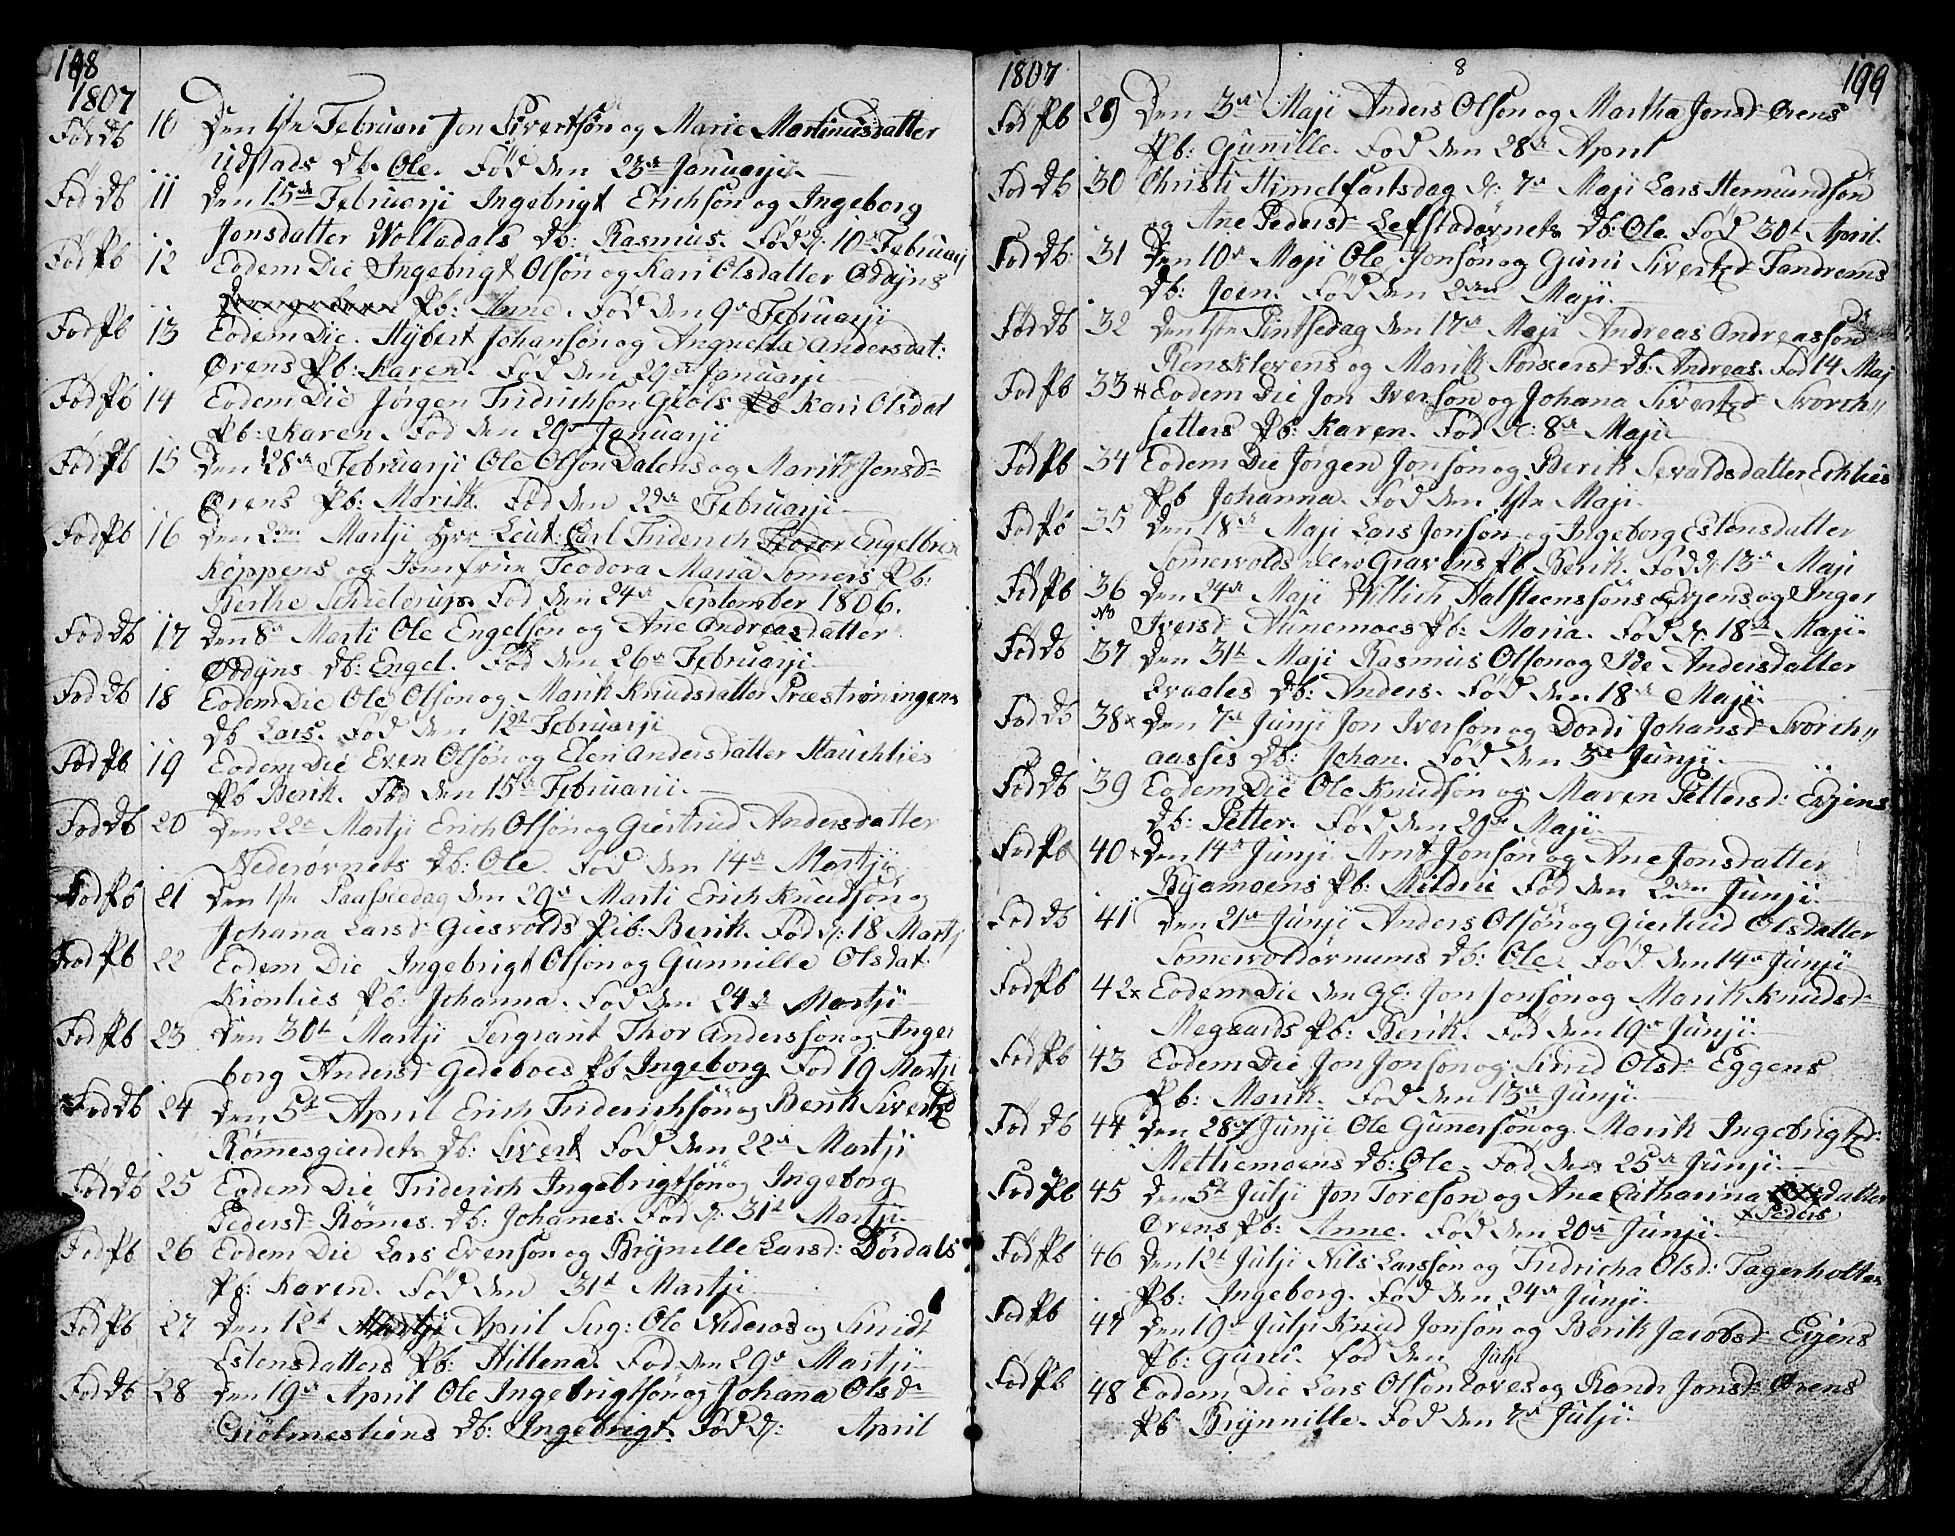 198
1807
Fød Db 10 Den 1ste Februari Jon Sivertsøn og Marie Martinusdatter
Udstads Db. Ole. Fød den 23de Januarji
Fød Db 11 Den 15de Februarji Ingebrigt Erichsøn og Ingeborg
Jonsdatter Wolladals Db: Rasmus. Fød d: 10de Februarj
Fød Pb 12 Eodem Die Ingebrigt Olsøn og Kari Olsdatter Oddyns
Pb: Anne. Fød den 9de Februarji
Fød Pb 13 Eodem Die. Hybert Johansøn og Angnetha Andersdat:
Ørens Pb: Karen. Fød den 29de Januarji
Fød Pb 14 Eodem Die Jørgen Fridrichsøn Giøls Pb Kari Olsdat
Pb: Karen. Fød den 29de Januarji
Fød Pb 15 Den 28de Februarji Ole Olsøn Dalens og Marit Jonsd
Ørens Pb: Marik. Fød den 22de Februarji
Fød Pb 16 Den 2den Martji Herr Leut: Carl Friderich Engelbrex
Køppens og Jomfrue Teodora Maria Somers Pb:
Berthe Schielerup. Fød den 24de September 1806.
Fød Db 17 Den 8de Marti Ole Engelsøn og Ane Andreasdatter
Oddyns Db: Engel. Fød den 26de Februarji
Fød Db 18 Eodem Die Ole Olsøn og Marik Knudsdatter Præstrøningens
Db Lars. Fød den 12te Februarji
Fød Pb 19 Eodem Die Even Olsøn og Elen Andersdatter Hauchlies
Pb Berik. Fød den 15de Februarii.
Fød Db 20 Den 22de Martji Erich Olsøn og Giertrud Andersdatter
Nederørnets Db: Ole. Fød den 14de Martji
Fød Pb 21 Den 1ste Paaskedag den 29de Marti Erich Knudsøn og
Johana Larsd Giesvolds Pib: Berik. Fød d: 18 Martj
Fød Pb 22 Eodem Die Ingebrigt Olsøn og Gunnille Olsdat
Kionlies Pb: Johanna. Fød den 24de Martji
Fød Pb 23 Den 30te Martji Sergeant Thor Anderssøn og Inger
borg Andersd Gedeboes Pb Ingeborg Fød 19 Martji
Fød Db 24 Den 5te April Erich Friderichsøn og Berik Sivertsd
Rømesgierdets Db: Sivert Fød den 22de Martji
Fød Db 25 Eodem Die Friderich Ingebrigtsøn og Ingeborg
Pedersd Rømes. Db: Johanes. Fød d: 31te Martji
Fød Pb 26 Eodem Die Lars Evensøn og Brynille Larsd: Dørdals
Pb: Karen. Fød den 31te Martji
Fød Pb 27 Den 12te April Serg: Ole Nideros og Sirridt
Estensdatters Pb: Hillena. Fød den 29de Martji
Fød Db 28 Den 19de April Ole Ingebrigtsøn og Johana Olsd
Giølmesliens Db: Ingebrigt. Fød d: April
1807
8
199
Fød Pb 29) Den 3de Maji Anders Olsøn og Martha Jonsd Ørens
Pb: Gunille. Fød den 28de April
Fød Db 30 Christi Himelfartsdag d: 7de Maji Lars Hermundsøn
og Ane Pedersd Lefstadørnets Db: Ole. Fød 30te April.
Fød Db: 31 Den 10de Maji Ole Jonsøn og Guri Sivertsd Fandrems
Db: Joen. Fød den 2den Maji.
Fød Db 32 Den 1ste Pintsedag den 17de Maji Andreas Andreassøn
Rensklevens og Marik Db: Andreas. Fød 14 Maj
Fød Pb 33 Eodem Die Jon Iversøn og Johana Sivertsd Svorch„
setters Pb: Karen. Fød d: 8de Maji
Fød Pb 34 Eodem Die Jørgen Jonsøn og Berik Sevaldsdatter Echlies
Pb Johanna. Fød den 1ste Maji
Fød Pb 35 Den 18de Maji Lars Jonsøn og Ingeborg Estensdatter
Somervolds Gravens Pb Berik. Fød d: 13de Maji
Fød Pb 36 Den 24de Maji Willich Halsteensøns Evjens og Inger
NB
Iversd Aunemoes Pb: Maria. Fød d: 18de Maji.
Fød Db 37 Den 31te Maji Rasmus Olsøn og Ide Andersdatter
Db: Anders. Fød den 18de Maji.
Fød Db 38x Den 7de Junji Jon Iversøn og Dordi Johansd Svorch„
aasses Db: Johan. Fød den 3de Junji.
Fød Db 39 Eodem Die Ole Knudsøn og Maren Pettersd: Evjens
Db: Petter. Fød den 29de Maji
Fød Pb 40x Den 14de Junji Arnt Jonsøn og Ane Jonsdatter
Byamoens Pb: Mildrii Fød den 2den Junji.
Fød Db 41 Den 21de Junji Anders Olsøn og Giertrud Olsdatter
Somervoldørnums Db: Ole. Fød den 14de Junji
Fød Pb 42x Eodem Die Jon Jonsøn og Marik Knudsd
Megaards Pb: Berik. Fød den 19de Junji.
Fød Pb 43 Eodem Die Jon Jonsøn og Sirid Olsd Eggens
Pb: Marik. Fød den 13de Junji.
Fød Db 44 Den 28de Junji Ole Gunersøn og Marik Ingebrigtsd:
Methemoens Db: Ole. Fød den 25de Junji.
Fød Pb 45 Den 5te Julji Jon Toresøn og Ane Catharina datter
x Peders
Ørens Pb: Anne. Fød den 20de Junji.
Fød Pb 46 Den 12te Julji Nils Larssøn og Fridricha Olsd: Fagerholten
Pb: Ingeborg. Fød den 24de Junji.
Fød Pb 47 Den 19de Julji Knud Jonsøn og Berik Jacobsd Evjens
Pb: Guri. Fød den Julji
Fød Pb 48 Eodem Die Lars Olsøn Loves og Randi Jonsd Ørens
Pb: Brynnille. Fød den 7de Julji.